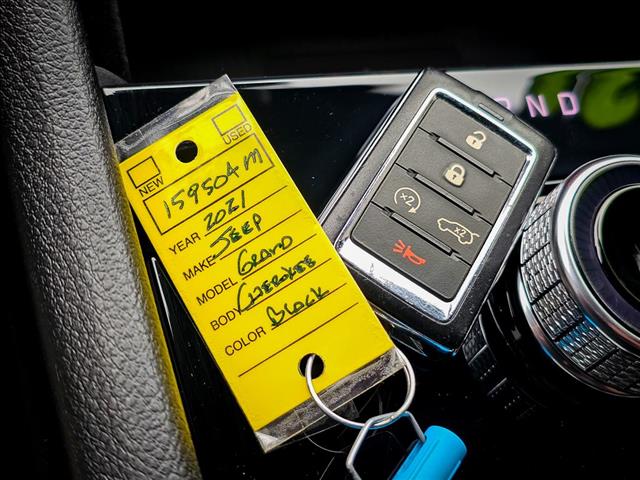 NEW
USED
159504M
YEAR 2021
MAKE JEEP
MODEL GRAND
BODY CHEROKEE
COLOR BLACK
X2
X2
RND